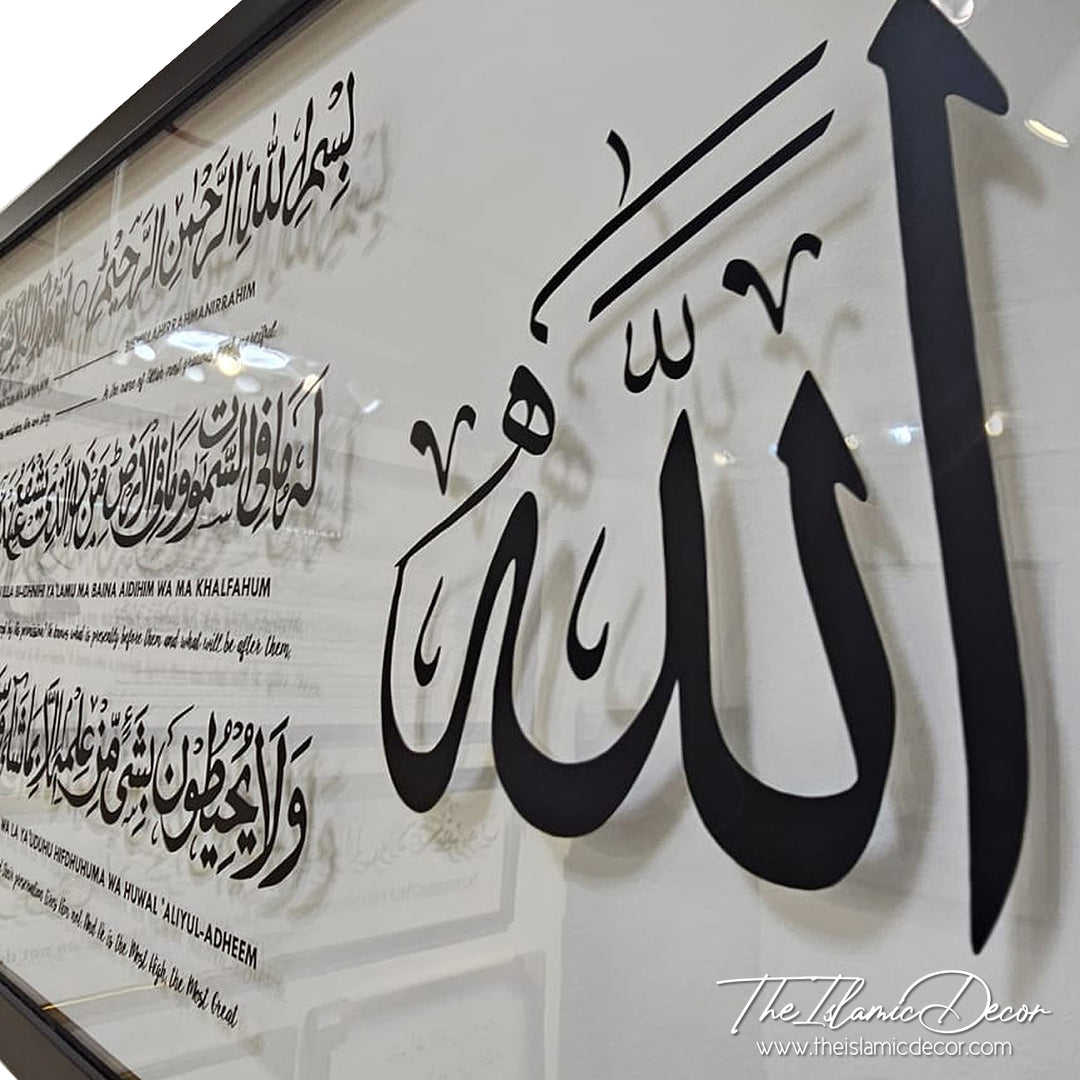 الله
بِسْمِ اللّٰهِ الرَّحْمٰنِ الرَّحِيْمِ
RRAHMANIRRAHIM
In the name of Allah
لَهٗ مَا فِي السَّمٰوٰتِ وَمَا فِي الْاَرْضِ مَنْ ذَا الَّذِيْ يَشْفَعُ
ILLA BI-IDHNIHI YA'LAMU MA BAINA AIDIHIM WA MA KHALFAHUM
by His permission? He knows what is presently before them and what will be after them,
وَلَا يُحِيْطُوْنَ بِشَيْءٍ مِّنْ عِلْمِهٖٓ اِلَّا بِمَا شَآءَ
WA LA YA'UDUHU HIFDHUHUMA WA HUWAL 'ALIYUL-ADHEEM
their preservation tires Him not. And He is the Most High, the Most Great
TheIslamicDecor
www.theislamicdecor.com